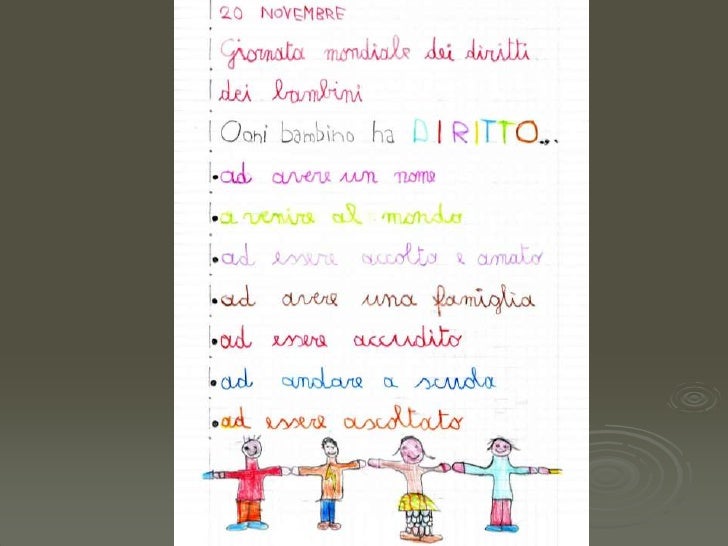 20 NOVEMBRE
Giornata mondiale dei diritti
dei bambini
Ogni bambino ha DIRITTO...
•ad avere un nome
•a venire al mondo
•ad essere accolto e amato
•ad avere una famiglia
•ad essere accudito
•ad andare a scuola
•ad essere ascoltato